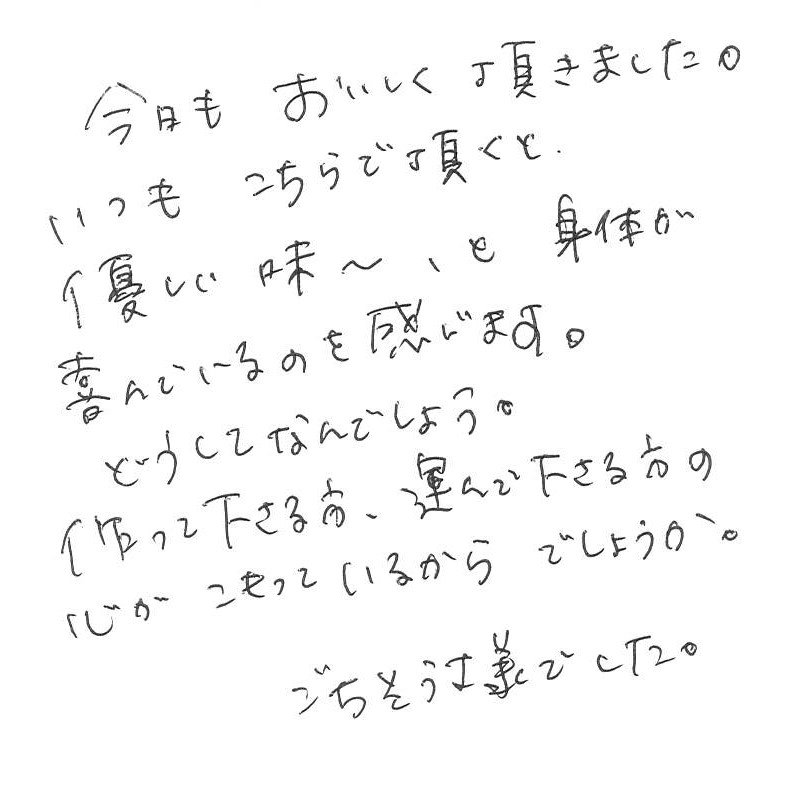 今日も おいしく 頂きました。
いつも こちらで頂くと、
優しい 味〜、と 身体が
喜んでいるのを感じます。
どうしてなんでしょう。
作って下さる方、運んで下さる方の
心が こもっているから でしょうか。
ごちそう様でした。